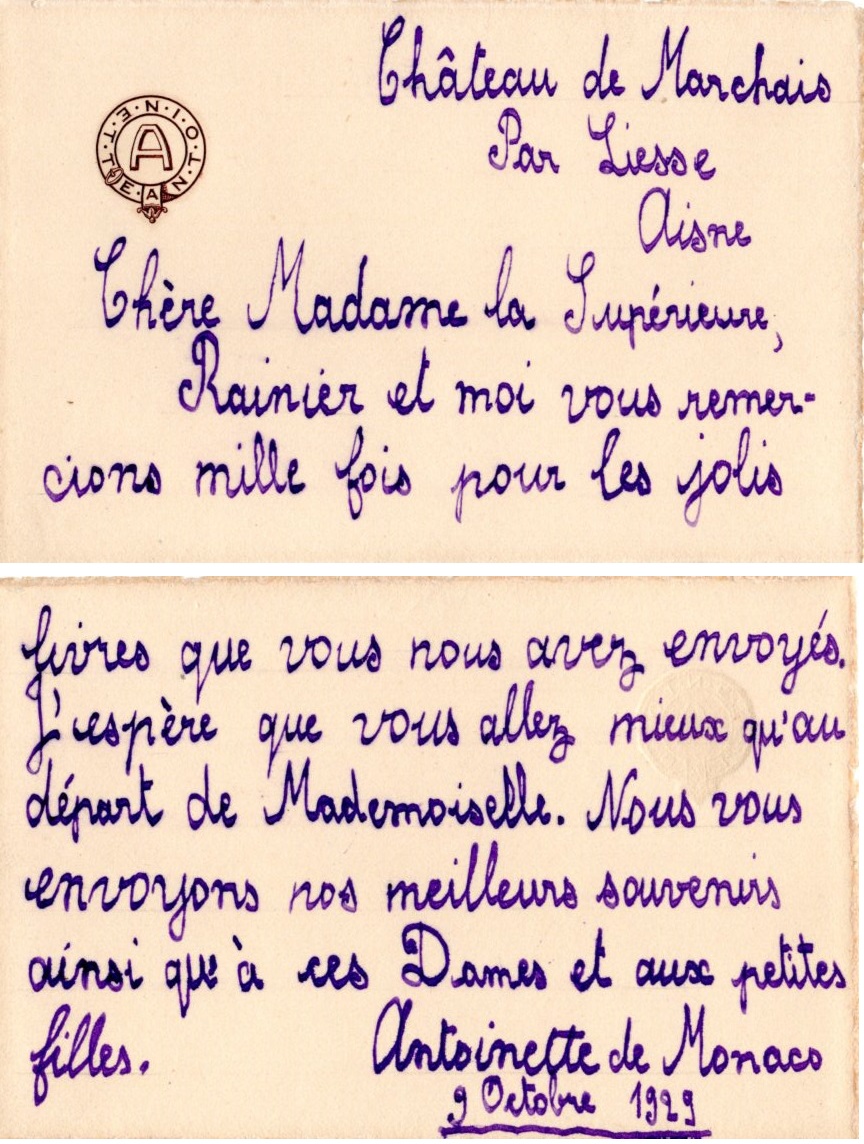 Château de Marchais
Par Liesse
Aisne
A
ANTOINETTE
Chère Madame la Supérieure,
Rainier et moi vous remer-
cions mille fois pour les jolis
livres que vous nous avez envoyés.
J'espère que vous allez mieux qu'au
départ de Mademoiselle. Nous vous
envoyons nos meilleurs souvenirs
ainsi qu'à ces Dames et aux petites
filles.
Antoinette de Monaco
9 Octobre 1929